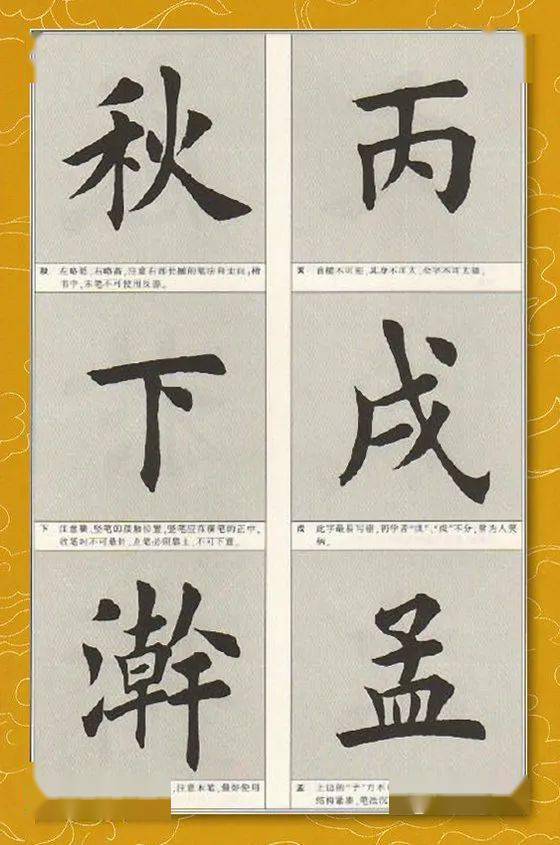 丙
丙 首横不可短，其身不可大，全字不可太矮。
戌
戌 此字最易写错，初学者“戊”、“戌”不分，常为人笑
柄。
孟
孟 上边的“子”万不
结构紧凑，笔法沉
秋
秋 左略低，右略高，注意右部长捺的笔法和走向；楷
书中，末笔不可使用反捺。
下
下 注意横、竖笔的接触位置，竖笔应在横笔的正中。
收笔时不可悬针，点笔必须靠上，不可下置。
澣
，注意末笔，最好使用